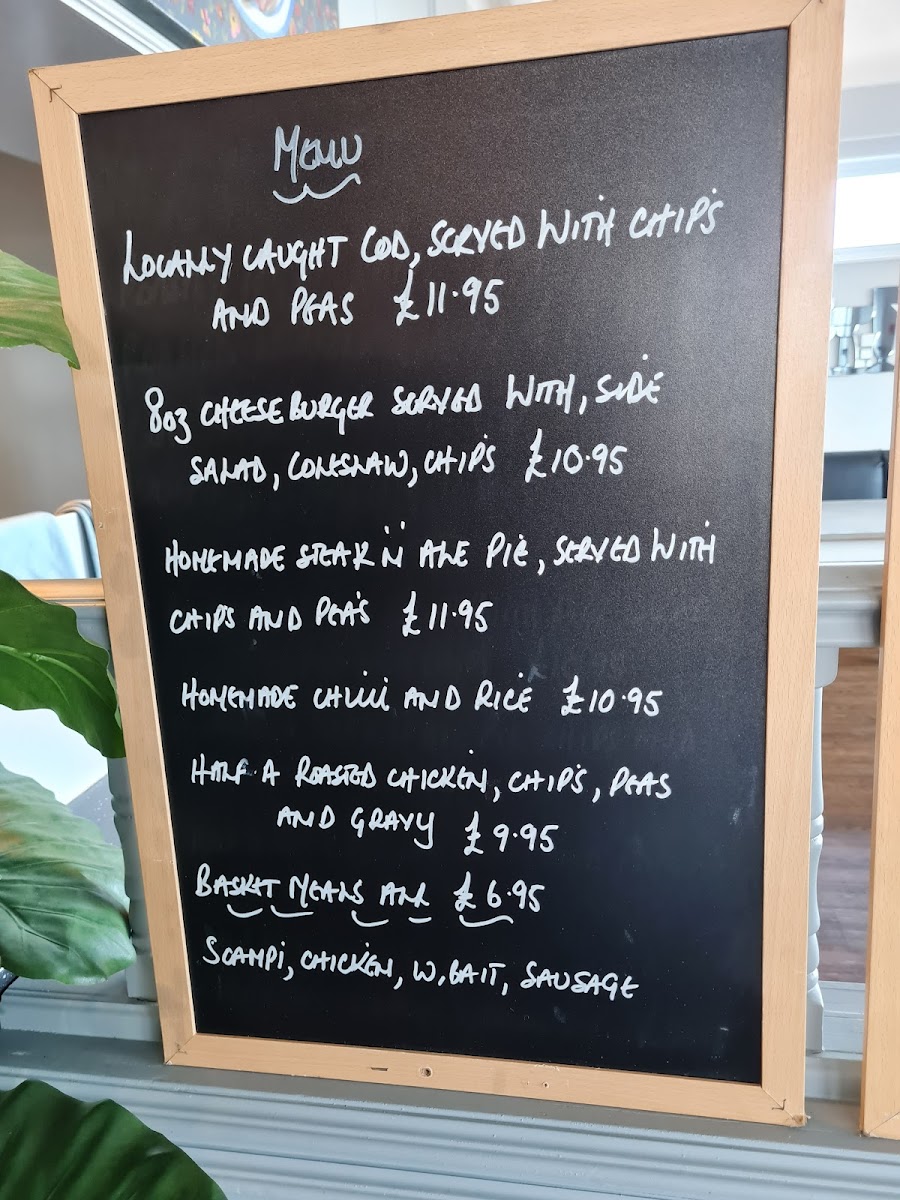 MENU
LOCALLY CAUGHT COD, SERVED WITH CHIPS
AND PEAS £11.95
8oz CHEESE BURGER SERVED WITH, SIDE
SALAD, COLESLAW, CHIPS £10.95
HOMEMADE STEAK 'N' ALE PIE, SERVED WITH
CHIPS AND PEAS £11.95
HOMEMADE CHILLI AND RICE £10.95
HALF A ROASTED CHICKEN, CHIPS, PEAS
AND GRAVY £9.95
BASKET MEALS ALL £6.95
SCAMPI, CHICKEN, W,BAIT, SAUSAGE